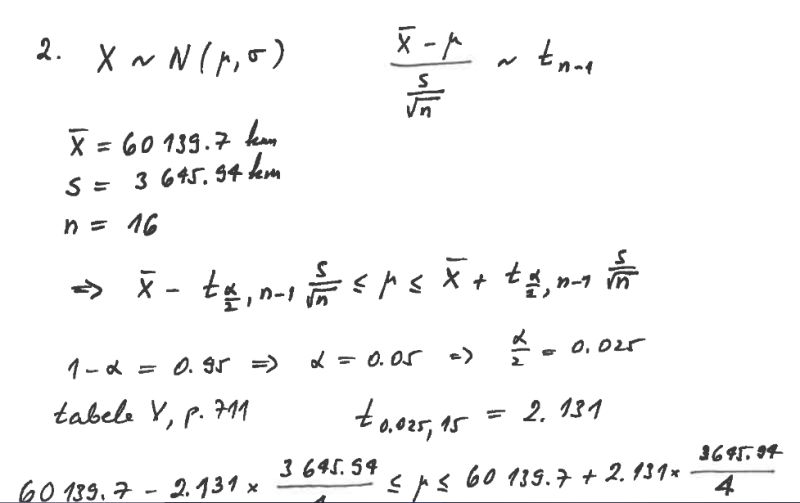 2. X ~ N(μ, σ) (x̄ - μ) / (s/√n) ~ t n-1
x̄ = 60 139.7 km
s = 3 645.94 km
n = 16
=> x̄ - t α/2, n-1 s/√n ≤ μ ≤ x̄ + t α/2, n-1 s/√n
1-α = 0.95 => α = 0.05 => α/2 = 0.025
tabele V, p. 711 t 0.025, 15 = 2.131
60 139.7 - 2.131 × 3 645.94/4 ≤ μ ≤ 60 139.7 + 2.131 × 3645.94/4